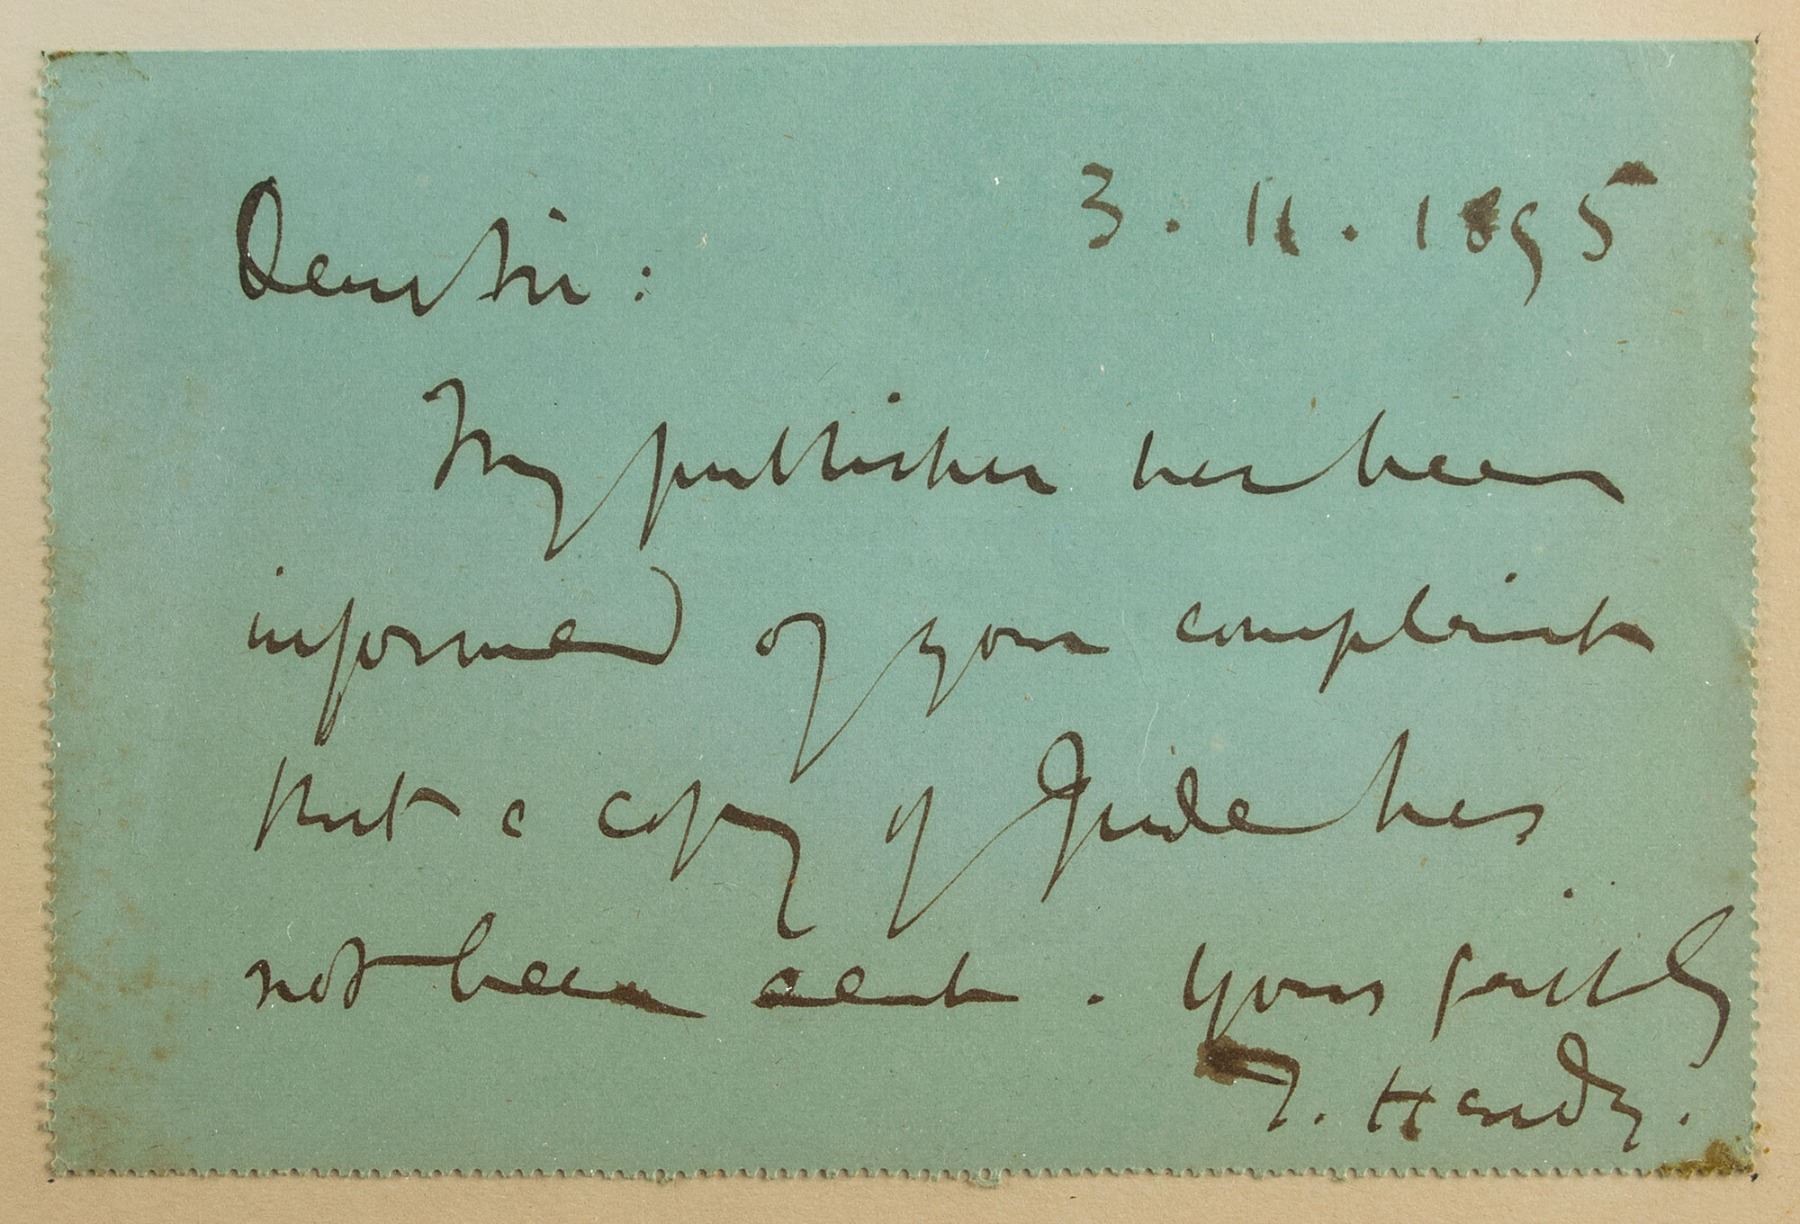 3. 11. 1895
Dear Sir:
My publisher has been
informed of your complaint
that a copy of Jude has
not been sent. Yours faithfly
T. Hardy.